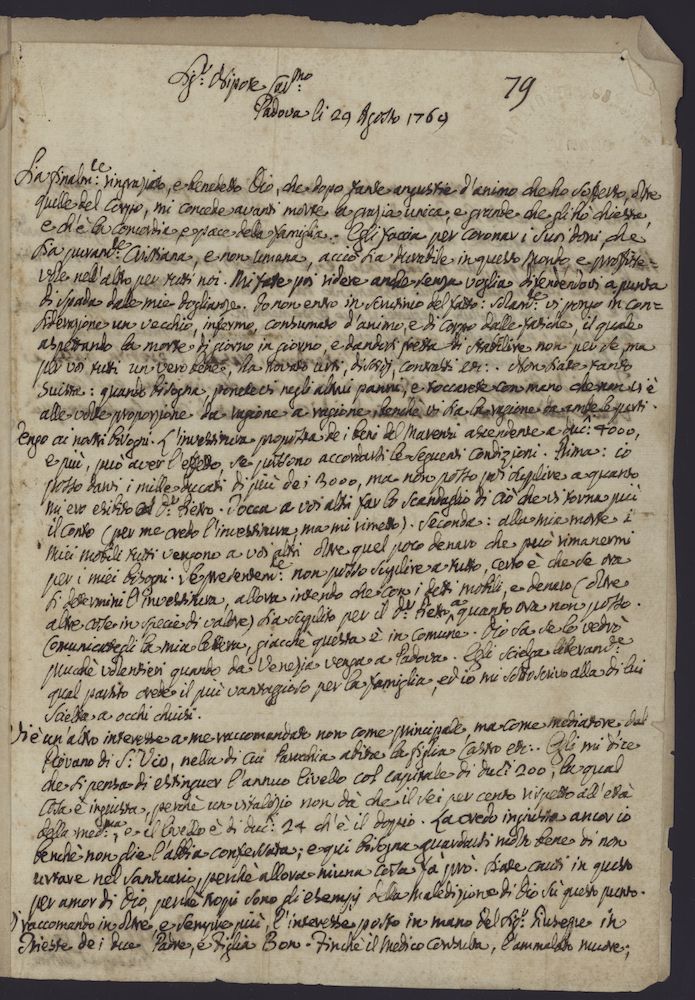 Sig.r Nipote Car.mo
79
Padova li 29 Agosto 1769
Sia finalm.te ringraziato, e benedetto Dio, che dopo tante angustie d'animo che ho sofferto, oltre
quelle del Corpo, mi concede avanti morte la grazia unica, e grande che gli hò chiesta,
e ch'è la Concordia, e pace della famiglia. Egli faccia per coronar i Suoi doni, che
sia puram.te Cristiana, e non umana, acciò sia durabile in questo Mondo, e profitte=
vole nell'altro per tutti noi. Mi fate poi ridere anche senza voglia difendendovi a punta
di spada dalle mie doglianze. Io non entro in scrutinio del fatto: solam.te vi pongo in con=
siderazione un vecchio, infermo, consumato d'animo, e di Corpo dalle fatiche, il quale
aspettando la morte di giorno in giorno, e dandosi fretta di stabilire non per se, ma
per voi tutti un vero bene, ha trovato urti, contrasti etc. Non siate tanto
: quando bisogna, ponetevi negli altrui panni, e toccarete con mano che non vi è
alle volte proporzione da ragione a ragione, benchè vi sia la ragione da ambe le parti.
Vengo ai nostri bisogni. L'investitura proposta de i beni del Marenzi ascendente a duc.ti 4000,
e più, può aver l'effetto, se possono accordarsi le seguenti condizioni. Prima: io
posso darvi i mille ducati di più dei 3000, ma non posso poi supplire a quanto
mi ero esibito al D.r Pietro. Tocca a voi altri far lo scandaglio di ciò che vi torna più
il conto (per me credo l'investitura, ma mi rimetto). Seconda: alla mia morte i
miei mobili tutti vengono a voi altri oltre quel poco denaro che può rimanermi
per i miei bisogni. Se presentem.te non posso supplire a tutto, certo è che se ora
si determini l'investitura, allora intendo che con i detti mobili, e denaro (oltre
altre cose in specie di valore) sia supplito per il D.r Pietro a quanto ora non posso.
Comunicategli la mia lettera, giacchè questa è in comune. Dio sa se lo vedrò
volentieri quando da Venezia venga a Padova. Egli scielga liberam.te
qual partito crede il più vantaggioso per la famiglia, ed io mi sottoscrivo alla di lui
scielta a occhi chiusi.
Vi è un'altro interesse a me raccomandato non come principale, ma come mediatore dal
Piovano di S. Vio, nella di cui Parochia abita la figlia Castro etc. Egli mi dice
che si pensa di estinguer l'annuo livello col capitale di duc.ti 200, la qual
cosa è ingiusta, perchè un vitalizio non dà che il sei per cento rispetto all'età
della med.ma, e il livello è di duc.ti 24 ch'è il doppio. La credo ingiusta ancor io
benchè non glie l'abbia confessata; e qui bisogna guardarsi molto bene di non
urtare nel Santuario, perchè allora niuna cosa fà prò. Siate cauti in questo
per amor di Dio, perchè troppi sono gli esempj della maledizione di Dio su questo punto.
Vi raccomando in oltre, e sempre più, l'interesse posto in mano del Sig.r Giuseppe in
Trieste de i due Padre, e Figlia Bon. Finchè il Medico consulta, l'ammalato muore;